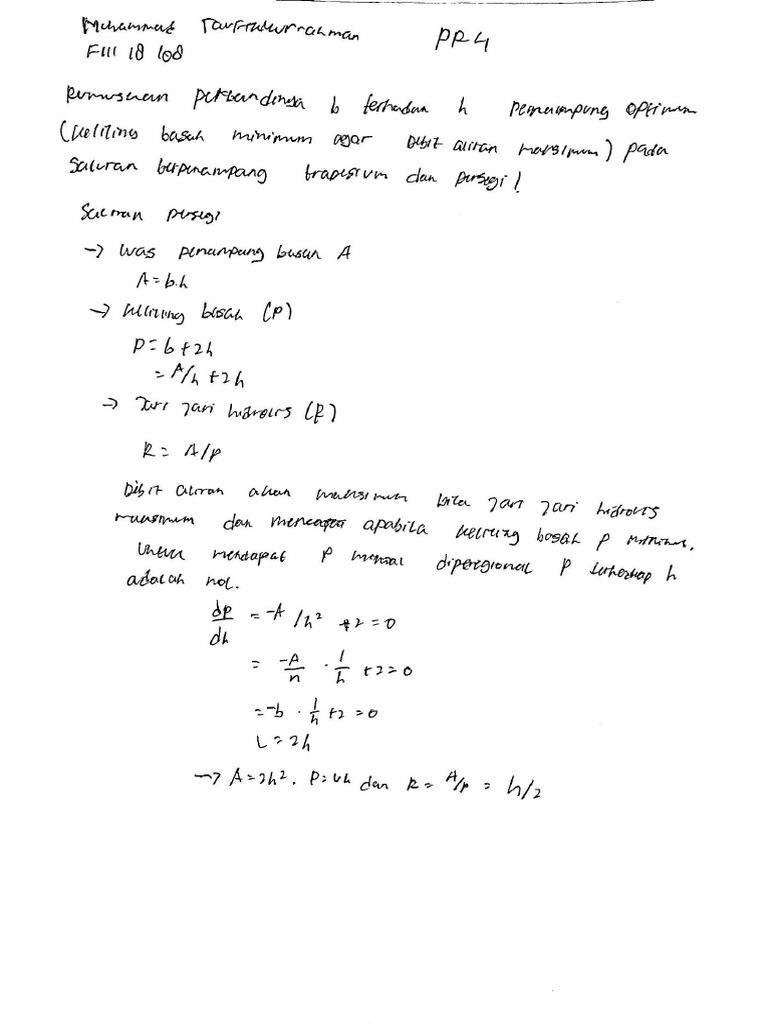 Muhammad Taufiqurrahman PR 4
F111 18 108
Rumuskan perbandingan b terhadap h penampang optimum
(keliling basah minimum agar debit aliran maksimum) pada
saluran berpenampang trapesium dan persegi!
Saluran persegi
→ Luas penampang basah A
A = b.h
→ Keliling basah (P)
P = b + 2h
= A/h + 2h
→ Jari Jari hidrolis (R)
R = A/P
Debit aliran akan maksimum bila Jari Jari hidrolis
maksimum dan mencapai apabila keliling basah P minimum.
Untuk mendapat P minimal P terhadap h
adalah nol.
dp/dh = -A/h² + 2 = 0
= -A/h · 1/h + 2 = 0
= -b · 1/h + 2 = 0
L = 2h
→ A = 2h², P = 4h dan R = A/P = h/2